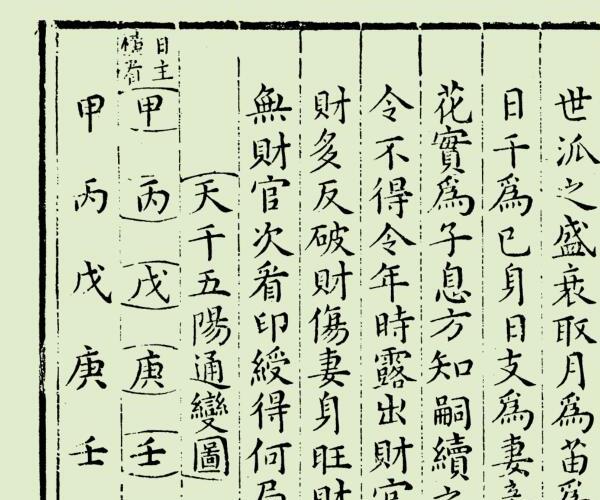 世派之盛衰取月為苗
日干為己身日支為妻
花實為子息方知嗣續
令不得令年時露出財官
財多反破財傷妻身旺財
無財官次看印綬得何局
天干五陽通變圖
日主橫看
甲 丙 戊 庚 壬
甲 丙 戊 庚 壬